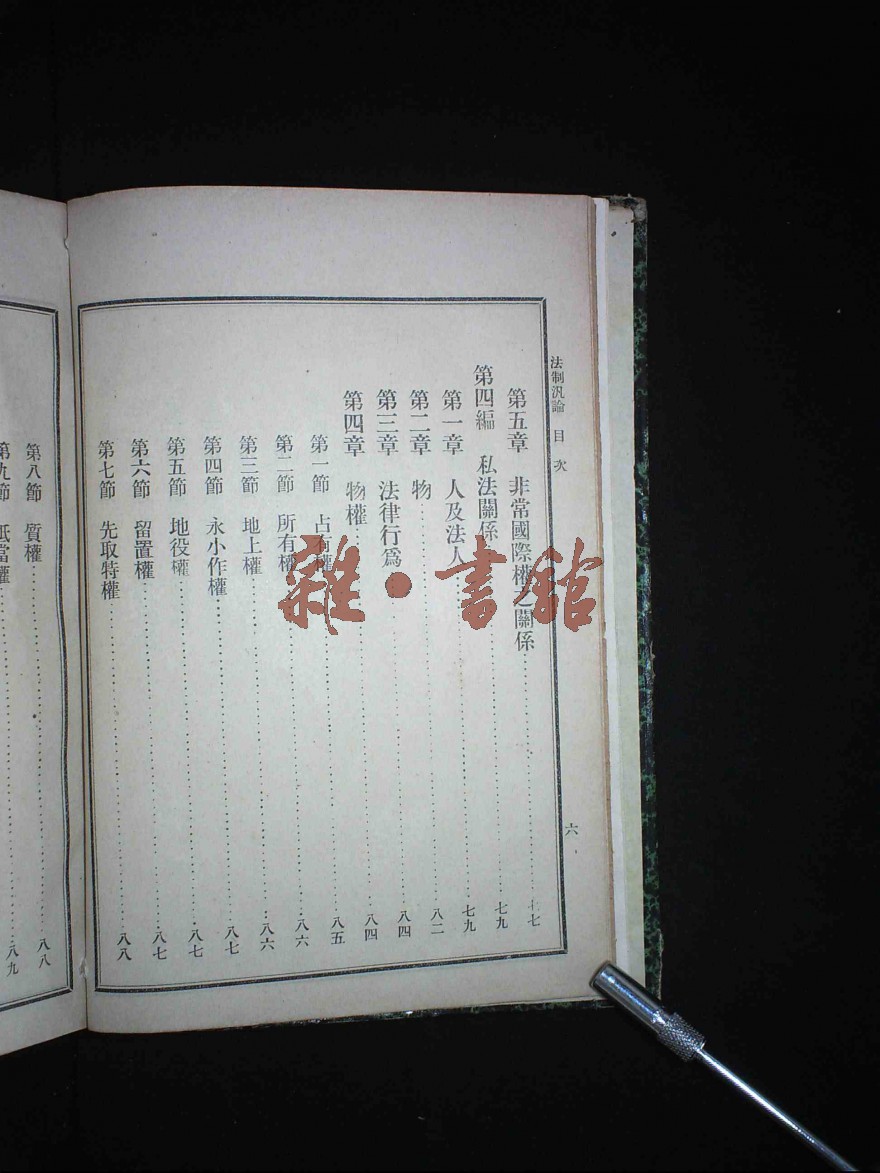 法制汎論 目次
第五章 非常國際權之關係……七七
第四編 私法關係……七九
第一章 人及法人……七九
第二章 物……八二
第三章 法律行爲……八四
第四章 物權……八四
第一節 占有權……八五
第二節 所有權……八六
第三節 地上權……八六
第四節 永小作權……八七
第五節 地役權……八七
第六節 留置權……八七
第七節 先取特權……八八
六
第八節 質權……八八
第九節 抵當權……八九
雜·書館